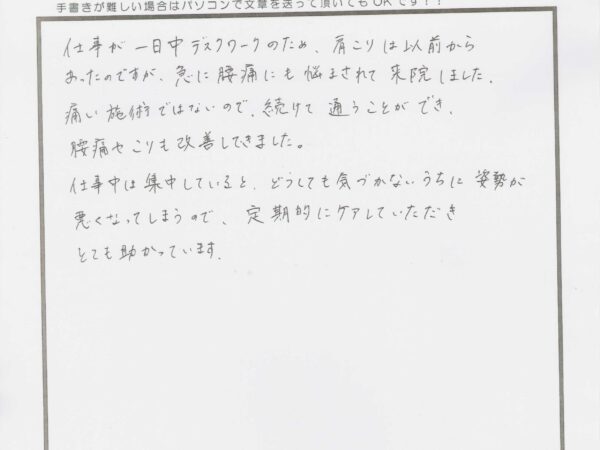 手書きが難しい場合はパソコンで文章を送って頂いてもOKです！！
仕事が一日中デスクワークのため、肩こりは以前から
あったのですが、急に腰痛にも悩まされて来院しました。
痛い施術ではないので、続けて通うことができ、
腰痛やこりも改善してきました。
仕事中は集中していると、どうしても気づかないうちに姿勢が
悪くなってしまうので、定期的にケアしていただき
とても助かっています。